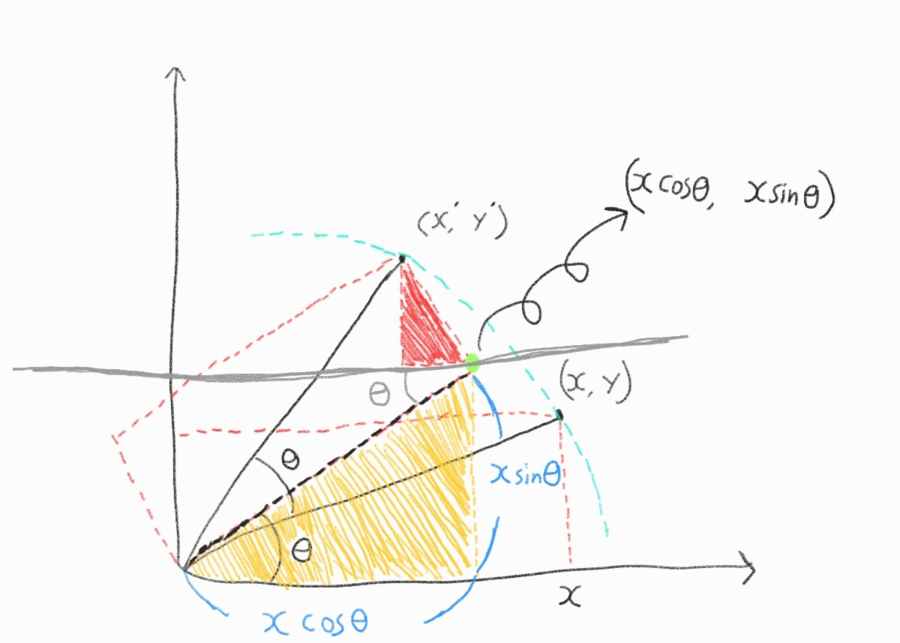 (x cosθ, x sinθ)
(x′, y′)
(x, y)
θ
θ
x sinθ
θ
x
x cosθ